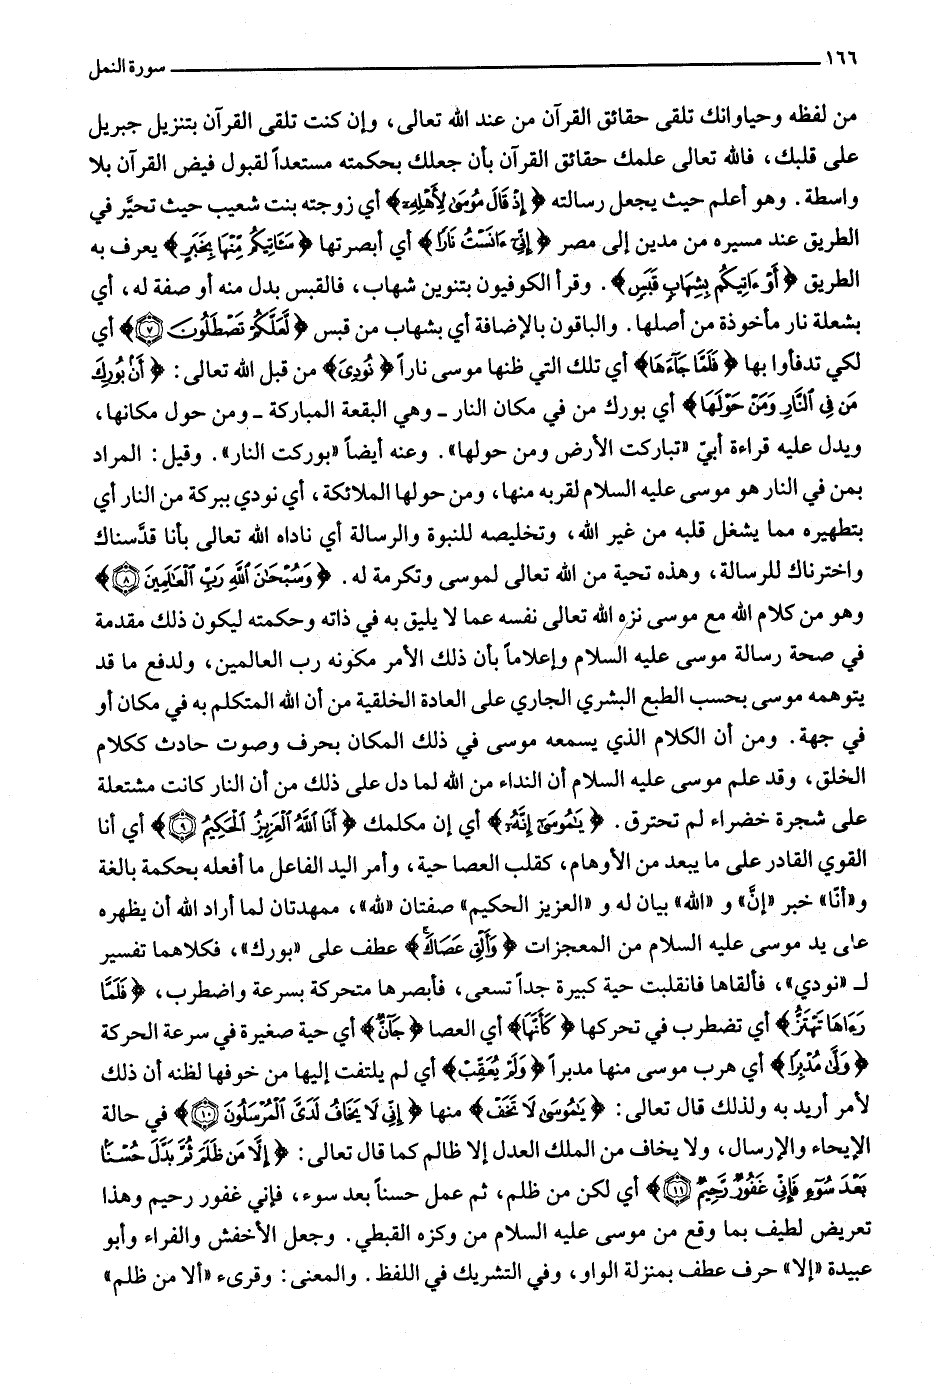 ١٦٦ سورة النمل
من لفظه وحياوانك تلقى حقائق القرآن من عند الله تعالى، وإن كنت تلقى القرآن بتنزيل جبريل
على قلبك، فالله تعالى علمك حقائق القرآن بأن جعلك بحكمته مستعداً لقبول فيض القرآن بلا
واسطة. وهو أعلم حيث يجعل رسالته ﴿إِذْ قَالَ مُوسَىٰ لِأَهْلِهِۦ﴾ أي زوجته بنت شعيب حيث تحيَّر في
الطريق عند مسيره من مدين إلى مصر ﴿إِنِّىٓ ءَانَسْتُ نَارًا﴾ أي أبصرتها ﴿سَـَٔاتِيكُم مِّنْهَا بِخَبَرٍ﴾ يعرف به
الطريق ﴿أَوْ ءَاتِيكُم بِشِهَابٍ قَبَسٍ﴾. وقرأ الكوفيون بتنوين شهاب، فالقبس بدل منه أو صفة له، أي
بشعلة نار مأخوذة من أصلها. والباقون بالإضافة أي بشهاب من قبس ﴿لَّعَلَّكُمْ تَصْطَلُونَ ٧﴾ أي
لكي تدفأوا بها ﴿فَلَمَّا جَآءَهَا﴾ أي تلك التي ظنها موسى ناراً ﴿نُودِىَ﴾ من قبل الله تعالى: ﴿أَنۢ بُورِكَ
مَن فِى ٱلنَّارِ وَمَنْ حَوْلَهَا﴾ أي بورك من في مكان النار ـ وهي البقعة المباركة ـ ومن حول مكانها،
ويدل عليه قراءة أبيّ «تباركت الأرض ومن حولها». وعنه أيضاً «بوركت النار». وقيل: المراد
بمن في النار هو موسى عليه السلام لقربه منها، ومن حولها الملائكة، أي نودي ببركة من النار أي
بتطهيره مما يشغل قلبه من غير الله، وتخليصه للنبوة والرسالة أي ناداه الله تعالى بأنا قدَّسناك
واخترناك للرسالة، وهذه تحية من الله تعالى لموسى وتكرمة له. ﴿وَسُبْحَـٰنَ ٱللَّهِ رَبِّ ٱلْعَـٰلَمِينَ ٨﴾
وهو من كلام الله مع موسى نزه الله تعالى نفسه عما لا يليق به في ذاته وحكمته ليكون ذلك مقدمة
في صحة رسالة موسى عليه السلام وإعلاماً بأن ذلك الأمر مكونه رب العالمين، ولدفع ما قد
يتوهمه موسى بحسب الطبع البشري الجاري على العادة الخلقية من أن الله المتكلم به في مكان أو
في جهة. ومن أن الكلام الذي يسمعه موسى في ذلك المكان بحرف وصوت حادث ككلام
الخلق، وقد علم موسى عليه السلام أن النداء من الله لما دل على ذلك من أن النار كانت مشتعلة
على شجرة خضراء لم تحترق. ﴿يَـٰمُوسَىٰٓ إِنَّهُۥٓ﴾ أي إن مكلمك ﴿أَنَا ٱللَّهُ ٱلْعَزِيزُ ٱلْحَكِيمُ ٩﴾ أي أنا
القوي القادر على ما يبعد من الأوهام، كقلب العصا حية، وأمر اليد الفاعل ما أفعله بحكمة بالغة
و«أنا» خبر «إنَّ» و «الله» بيان له و «العزيز الحكيم» صفتان «لله»، ممهدتان لما أراد الله أن يظهره
على يد موسى عليه السلام من المعجزات ﴿وَأَلْقِ عَصَاكَ﴾ عطف على «بورك»، فكلاهما تفسير
لـ «نودي»، فألقاها فانقلبت حية كبيرة جداً تسعى، فأبصرها متحركة بسرعة واضطرب، ﴿فَلَمَّا
رَءَاهَا تَهْتَزُّ﴾ أي تضطرب في تحركها ﴿كَأَنَّهَا﴾ أي العصا ﴿جَآنٌّ﴾ أي حية صغيرة في سرعة الحركة
﴿وَلَّىٰ مُدْبِرًا﴾ أي هرب موسى منها مدبراً ﴿وَلَمْ يُعَقِّبْ﴾ أي لم يلتفت إليها من خوفها لظنه أن ذلك
لأمر أريد به ولذلك قال تعالى: ﴿يَـٰمُوسَىٰ لَا تَخَفْ﴾ منها ﴿إِنِّى لَا يَخَافُ لَدَىَّ ٱلْمُرْسَلُونَ ١٠﴾ في حالة
الإيحاء والإرسال، ولا يخاف من الملك العدل إلا ظالم كما قال تعالى: ﴿إِلَّا مَن ظَلَمَ ثُمَّ بَدَّلَ حُسْنًۢا
بَعْدَ سُوٓءٍ فَإِنِّى غَفُورٌ رَّحِيمٌ ١١﴾ أي لكن من ظلم، ثم عمل حسناً بعد سوء، فإني غفور رحيم وهذا
تعريض لطيف بما وقع من موسى عليه السلام من وكزه القبطي. وجعل الأخفش والفراء وأبو
عبيدة «إلا» حرف عطف بمنزلة الواو، وفي التشريك في اللفظ. والمعنى: وقرىء «ألا من ظلم»